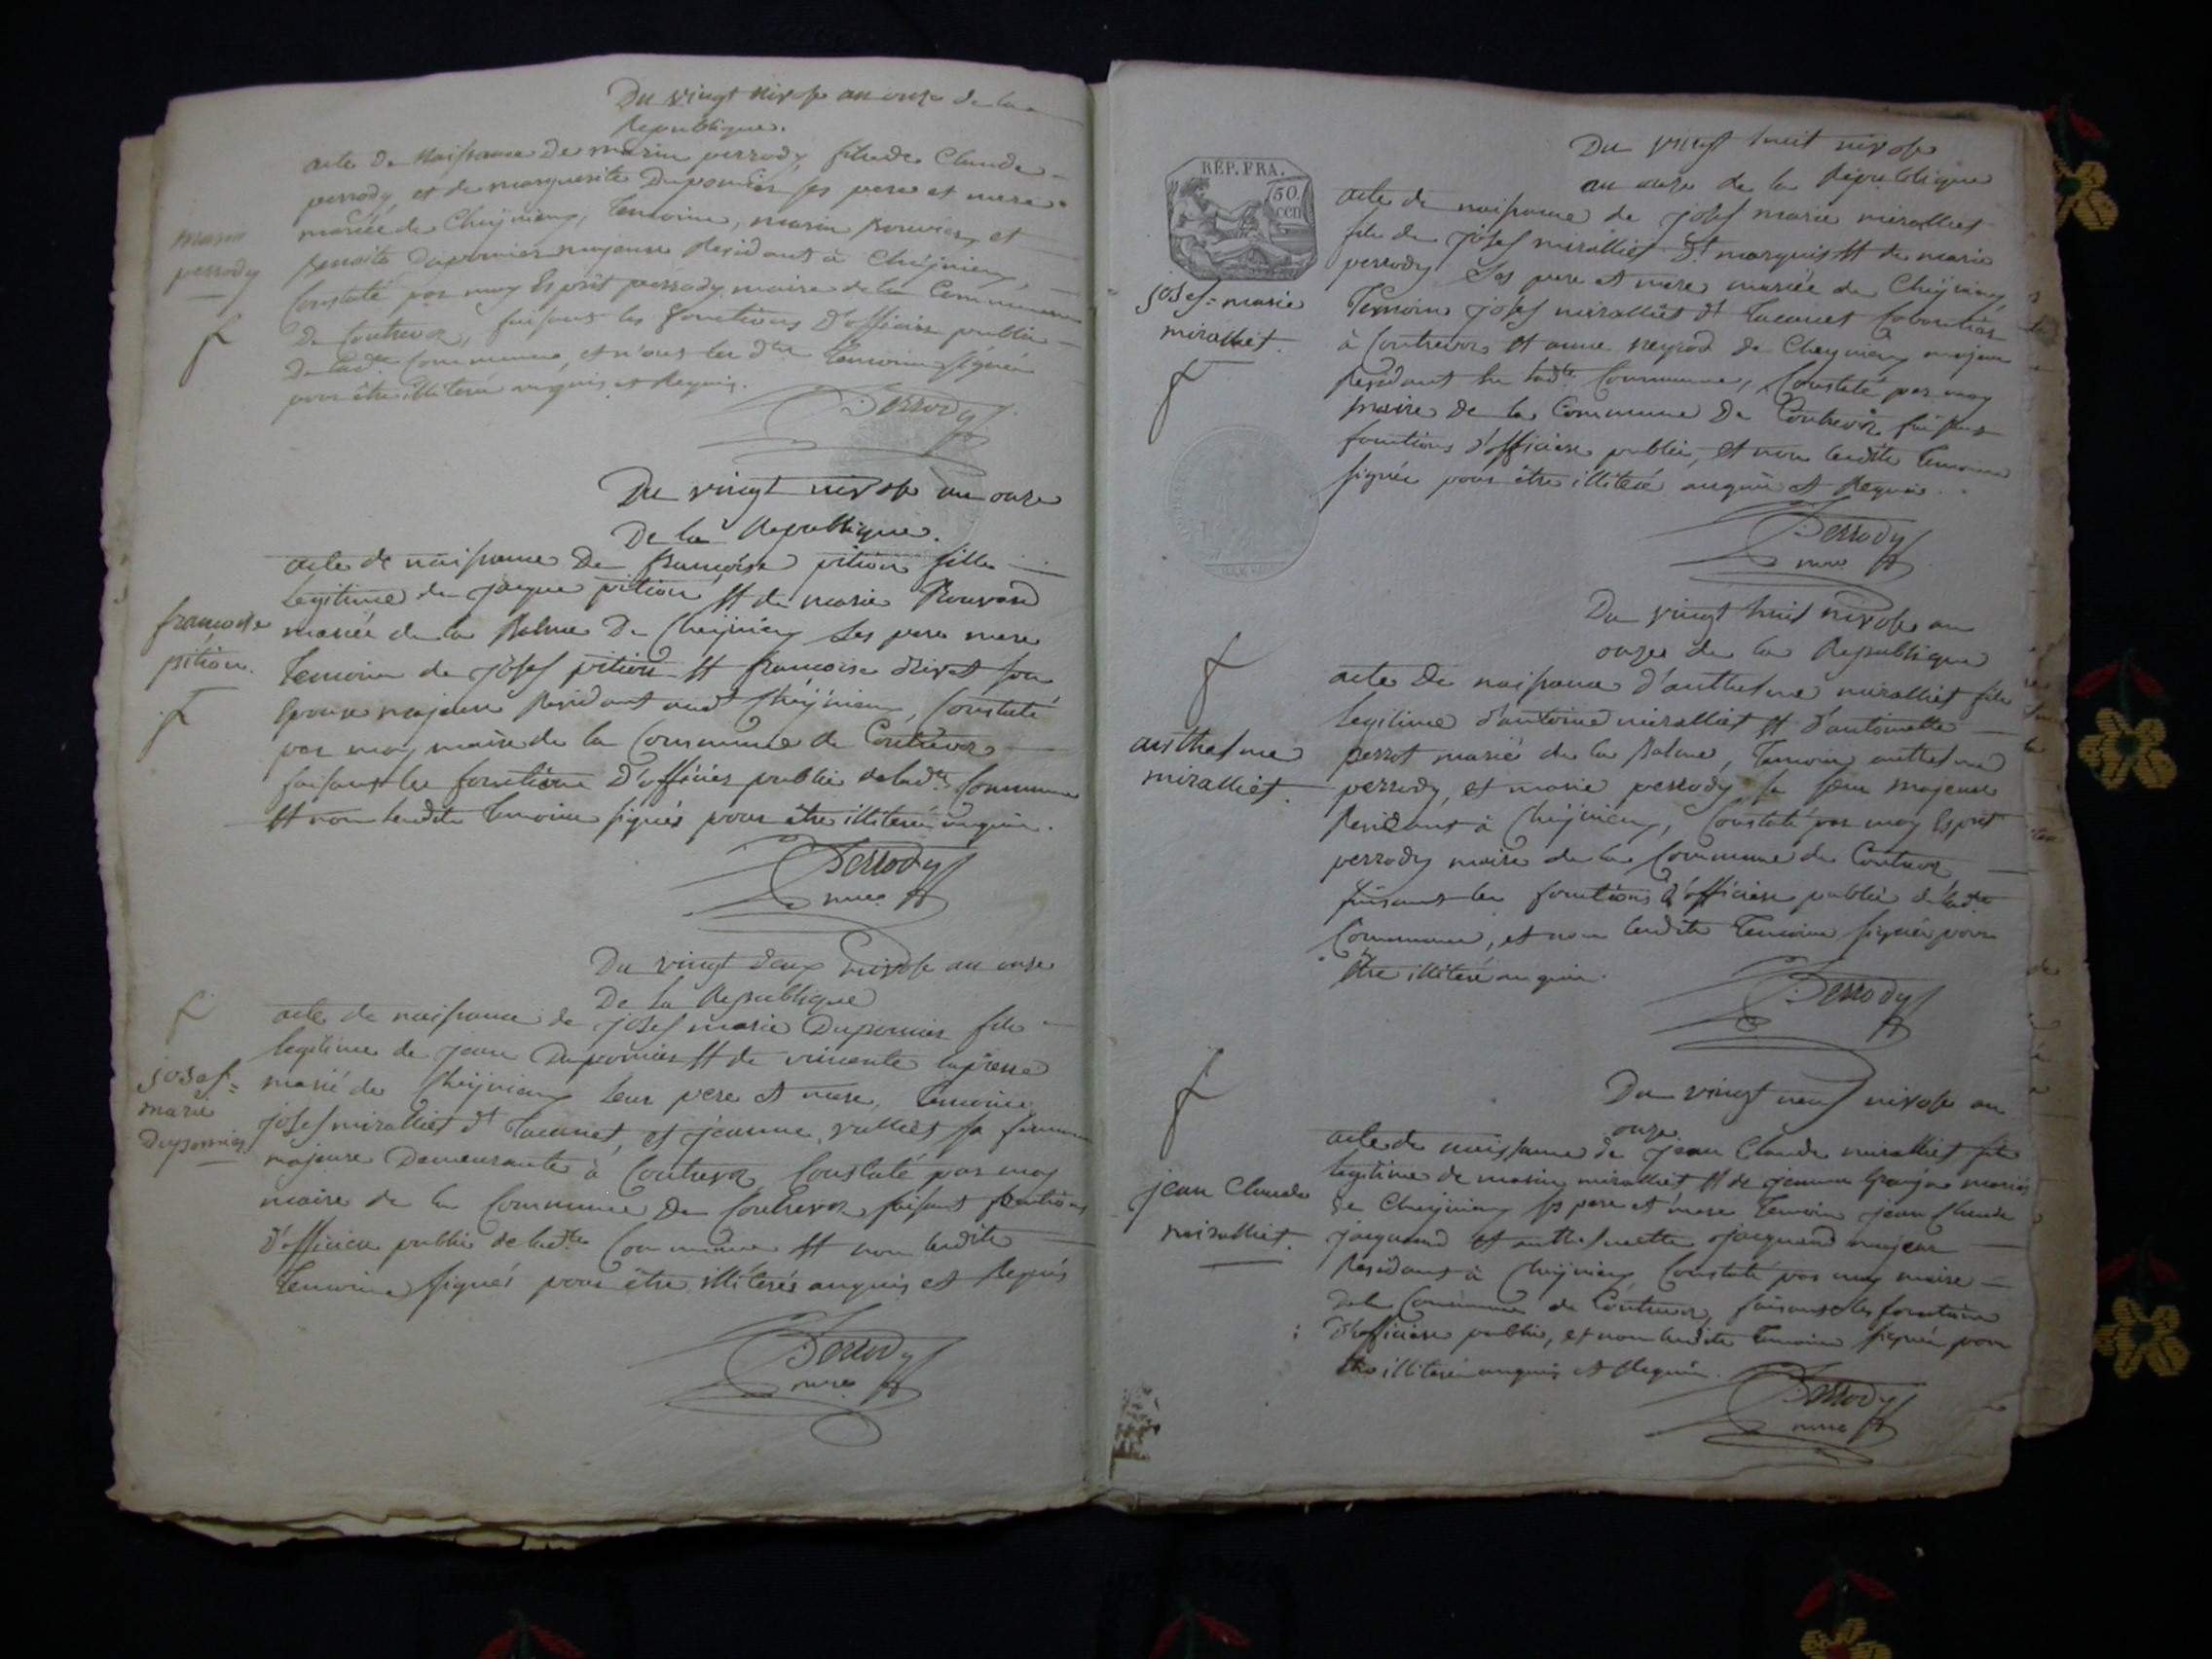 Du vingt nivose an onze de la
Republique.
acte de naissance de marin perrody, fils de Claude
perrody, et de marguerite Dupomier ses pere et mere
mariée de Cheÿnieu, temoins, marin bouvier, et
benoite Dupomier majeure Residant à Cheÿnieu,
Constaté par moy Esprit perrody maire de la Commune
De Contrevoz, faisant les fonctions d'officier public
De lad.te Commune, et n'ont les d.ts temoins signés
pour être illiteré enquis et Requis.
marin
perrody
Perrody
Du vingt nivose an onze
De la Republique.
acte de naissance De francoise pition fille
Legitime de jaque pition et de marie Bouvard
mariée de la Balme De Cheÿnieu Ses pere mere
temoins de josef pition et francoise Rivet son
Epouse majeure Residant aud.t Cheÿnieu, Constaté
par moy maire de la Commune de Contrevoz
faisant les fonctions D'officier public de lad.te Commune
et non lesdits temoins signés pour être illiteré enquis.
francoise
pition.
Perrody
mre
Du vingt deux nivose an onze
De la Republique
acte de naissance de josef marie Dupomier fils
legitime de jean Dupomier et de vincente
marié de Cheÿnieu Leur pere et mere, temoins
josef miralliet d.t tacanet, et jeanne valliet sa femme
majeure Demeurante à Contrevoz, Constaté par moy
maire de la Commune De Contrevoz faisant fonctions
d'officier public de lad.te Commune et non lesdits
temoins signés pour être illiterés enquis et Requis
josef=
marie
Dupomier
Perrody
mre
REP. FRA.
50.
cen
Du vingt huit nivose
an onze de la Republique
acte de naissance de josef marie miralliet
fils de josef miralliet d.t marquis et de marie
perrody Ses pere et mere mariée de Cheÿnieu,
temoins josef miralliet d.t tacanet
à Contrevoz et anne neyrod de Cheynieu majeur
Residant en lad.te Commune, Constaté par moy
maire de la Commune De Contrevoz faisant
fonctions d'officier public, et non lesdits temoins
signés pour être illiteré enquis et Requis.
josef=marie
miralliet.
Perrody
mre
Du vingt huit nivose an
onze de la Republique
acte De naissance d'anthelme miralliet fils
Legitime d'antoine miralliet et d'antoinette
perrot marié de la Balme, temoins anthelme
perrody, et marie perrody sa majeure
Residant à Cheÿnieu, Constaté par moy Esprit
perrody maire de la Commune de Contrevoz
faisant les fonctions d'officier public de lad.te
Commune, et non lesdits temoins signés pour
être illiteré enquis.
anthelme
miralliet.
Perrody
Du vingt neuf nivose an
onze.
acte de naissance de jean Claude miralliet fils
legitime de marin miralliet et de jeanne mariés
de Cheÿnieu ses pere et mere temoins jean Claude
jacquand et anthelmette jacquand majeur
Residant à Cheÿnieu, Constaté par moy maire
de la Commune de Contrevoz, faisant les fonctions
d'officier public, et non lesdits temoins signés pour
être illiteré enquis et Requis.
jean Claude
miralliet.
Perrody
mre